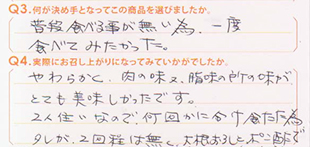 Q3.何が決め手となってこの商品を選びましたか。
普段食べる事が無い為、一度
食べてみたかった。
Q4.実際にお召し上がりになってみていかがでしたか。
やわらかく、肉の味も、脂味の所の味が
とても美味しかったです。
2人住いなので、何回かに分け食た為
タレが、2回程は無く、大根おろしとポン酢で